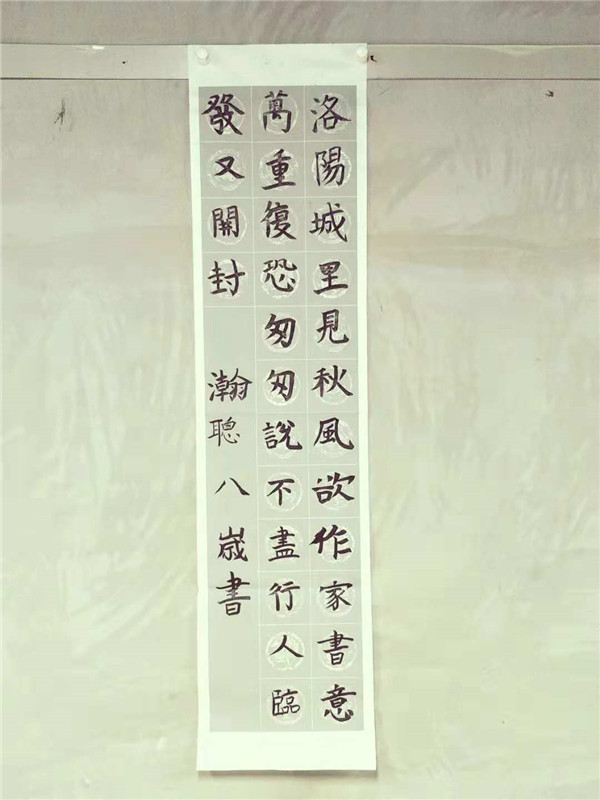 洛陽城里見秋風欲作家書意
萬重復恐匆匆說不盡行人臨
發又開封
瀚聰八歲書